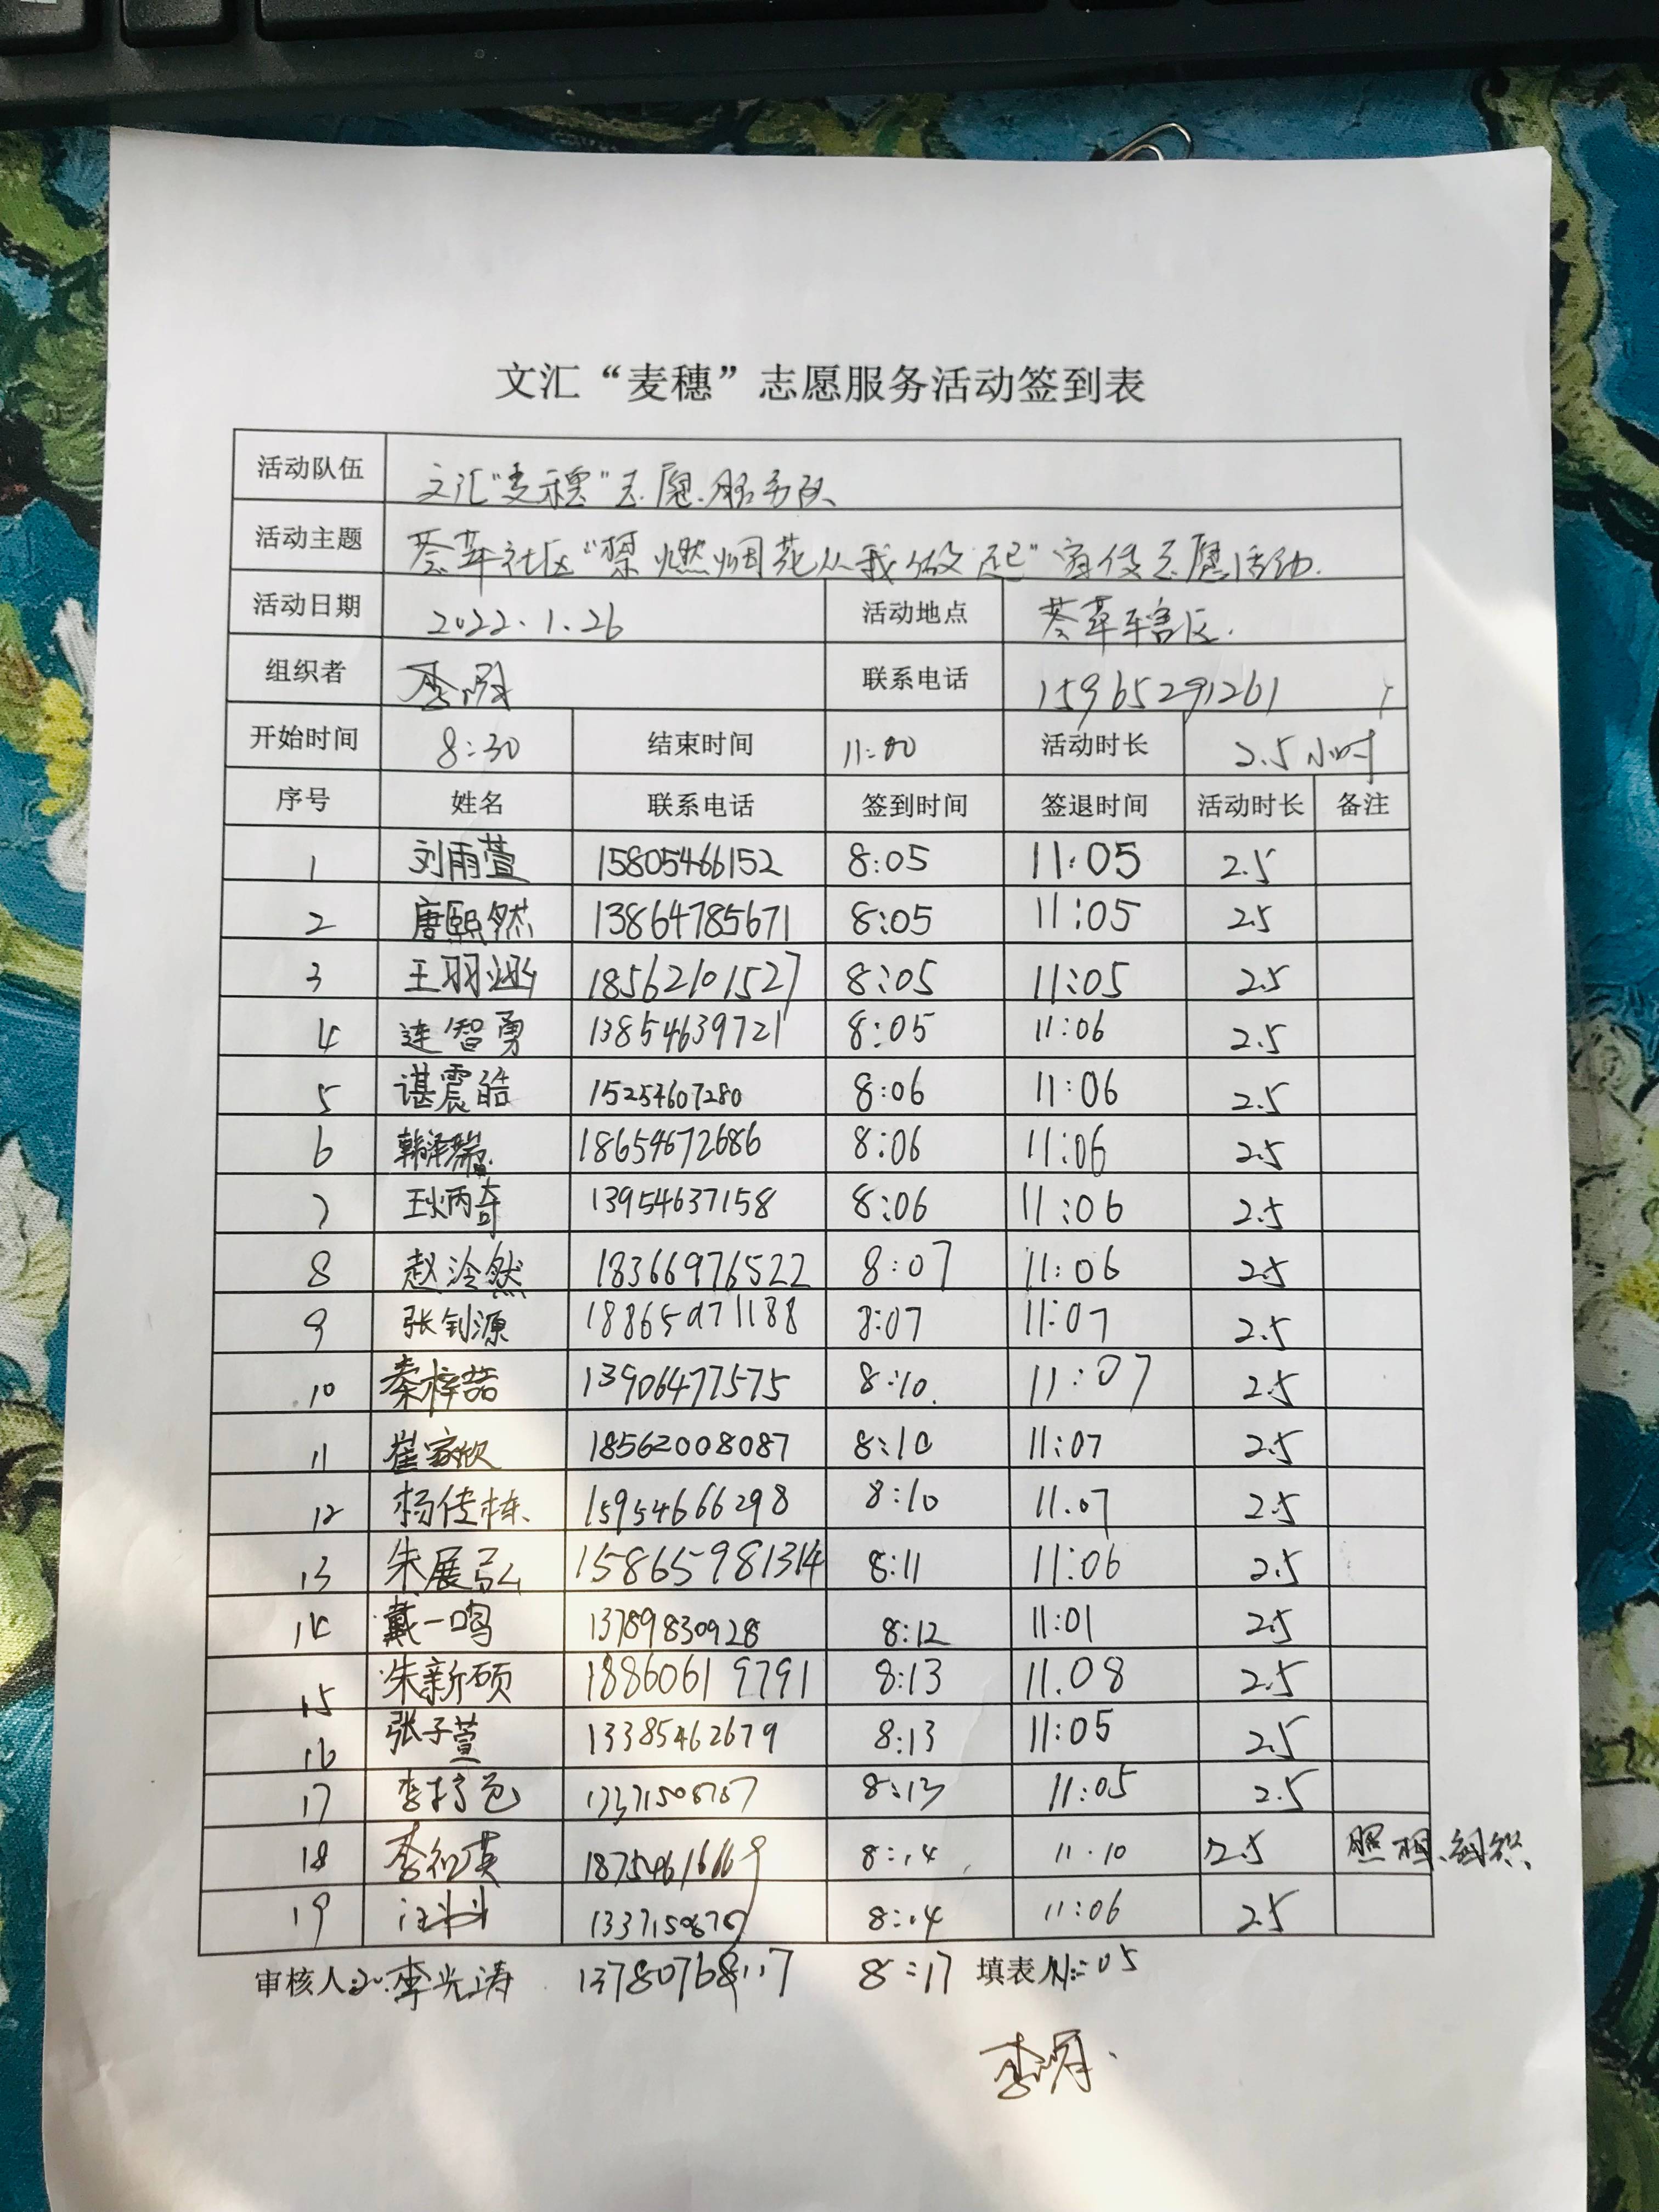 文汇“麦穗”志愿服务活动签到表
活动队伍 文汇“麦穗”志愿服务队
活动主题 荟萃社区“禁燃烟花从我做起”宣传志愿活动.
活动日期 2022.1.26 活动地点 荟萃辖区.
组织者 李 联系电话 15965291261
开始时间 8:30 结束时间 11:00 活动时长 2.5小时
序号 姓名 联系电话 签到时间 签退时间 活动时长 备注
1 刘雨萱 15805466152 8:05 11:05 2.5
2 唐熙然 13864785671 8:05 11:05 2.5
3 王羽 18562101527 8:05 11:05 2.5
4 连智勇 13854639721 8:05 11:06 2.5
5 谌震皓 15254607280 8:06 11:06 2.5
6 韩泽瑞 18654672686 8:06 11:06 2.5
7 王炳奇 13954637158 8:06 11:06 2.5
8 赵泠然 18366976522 8:07 11:06 2.5
9 张钊源 18865971188 8:07 11:07 2.5
10 秦梓喆 13906477575 8:10. 11:07 2.5
11 崔家欣 18562008087 8:10 11:07 2.5
12 杨传栋 15954666298 8:10 11.07 2.5
13 朱展弘 15865981314 8:11 11:06 2.5
14 戴一鸣 13789830928 8:12 11:01 2.5
15 朱新硕 18860619791 8:13 11.08 2.5
16 张子萱 13385462679 8:13 11:05 2.5
17 李 13371508787 8:13 11:05 2.5
18 李 英 18754616669 8:14 11.10 2.5 照相、组织
19 汪 8:14 11:06 2.5
审核人: 20.李光涛 8:17 填表人: 11:05
李